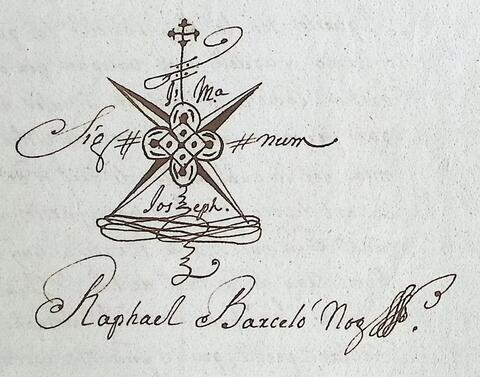 J. Ma
Sig # # num
Joseph.
Raphael Barceló Not